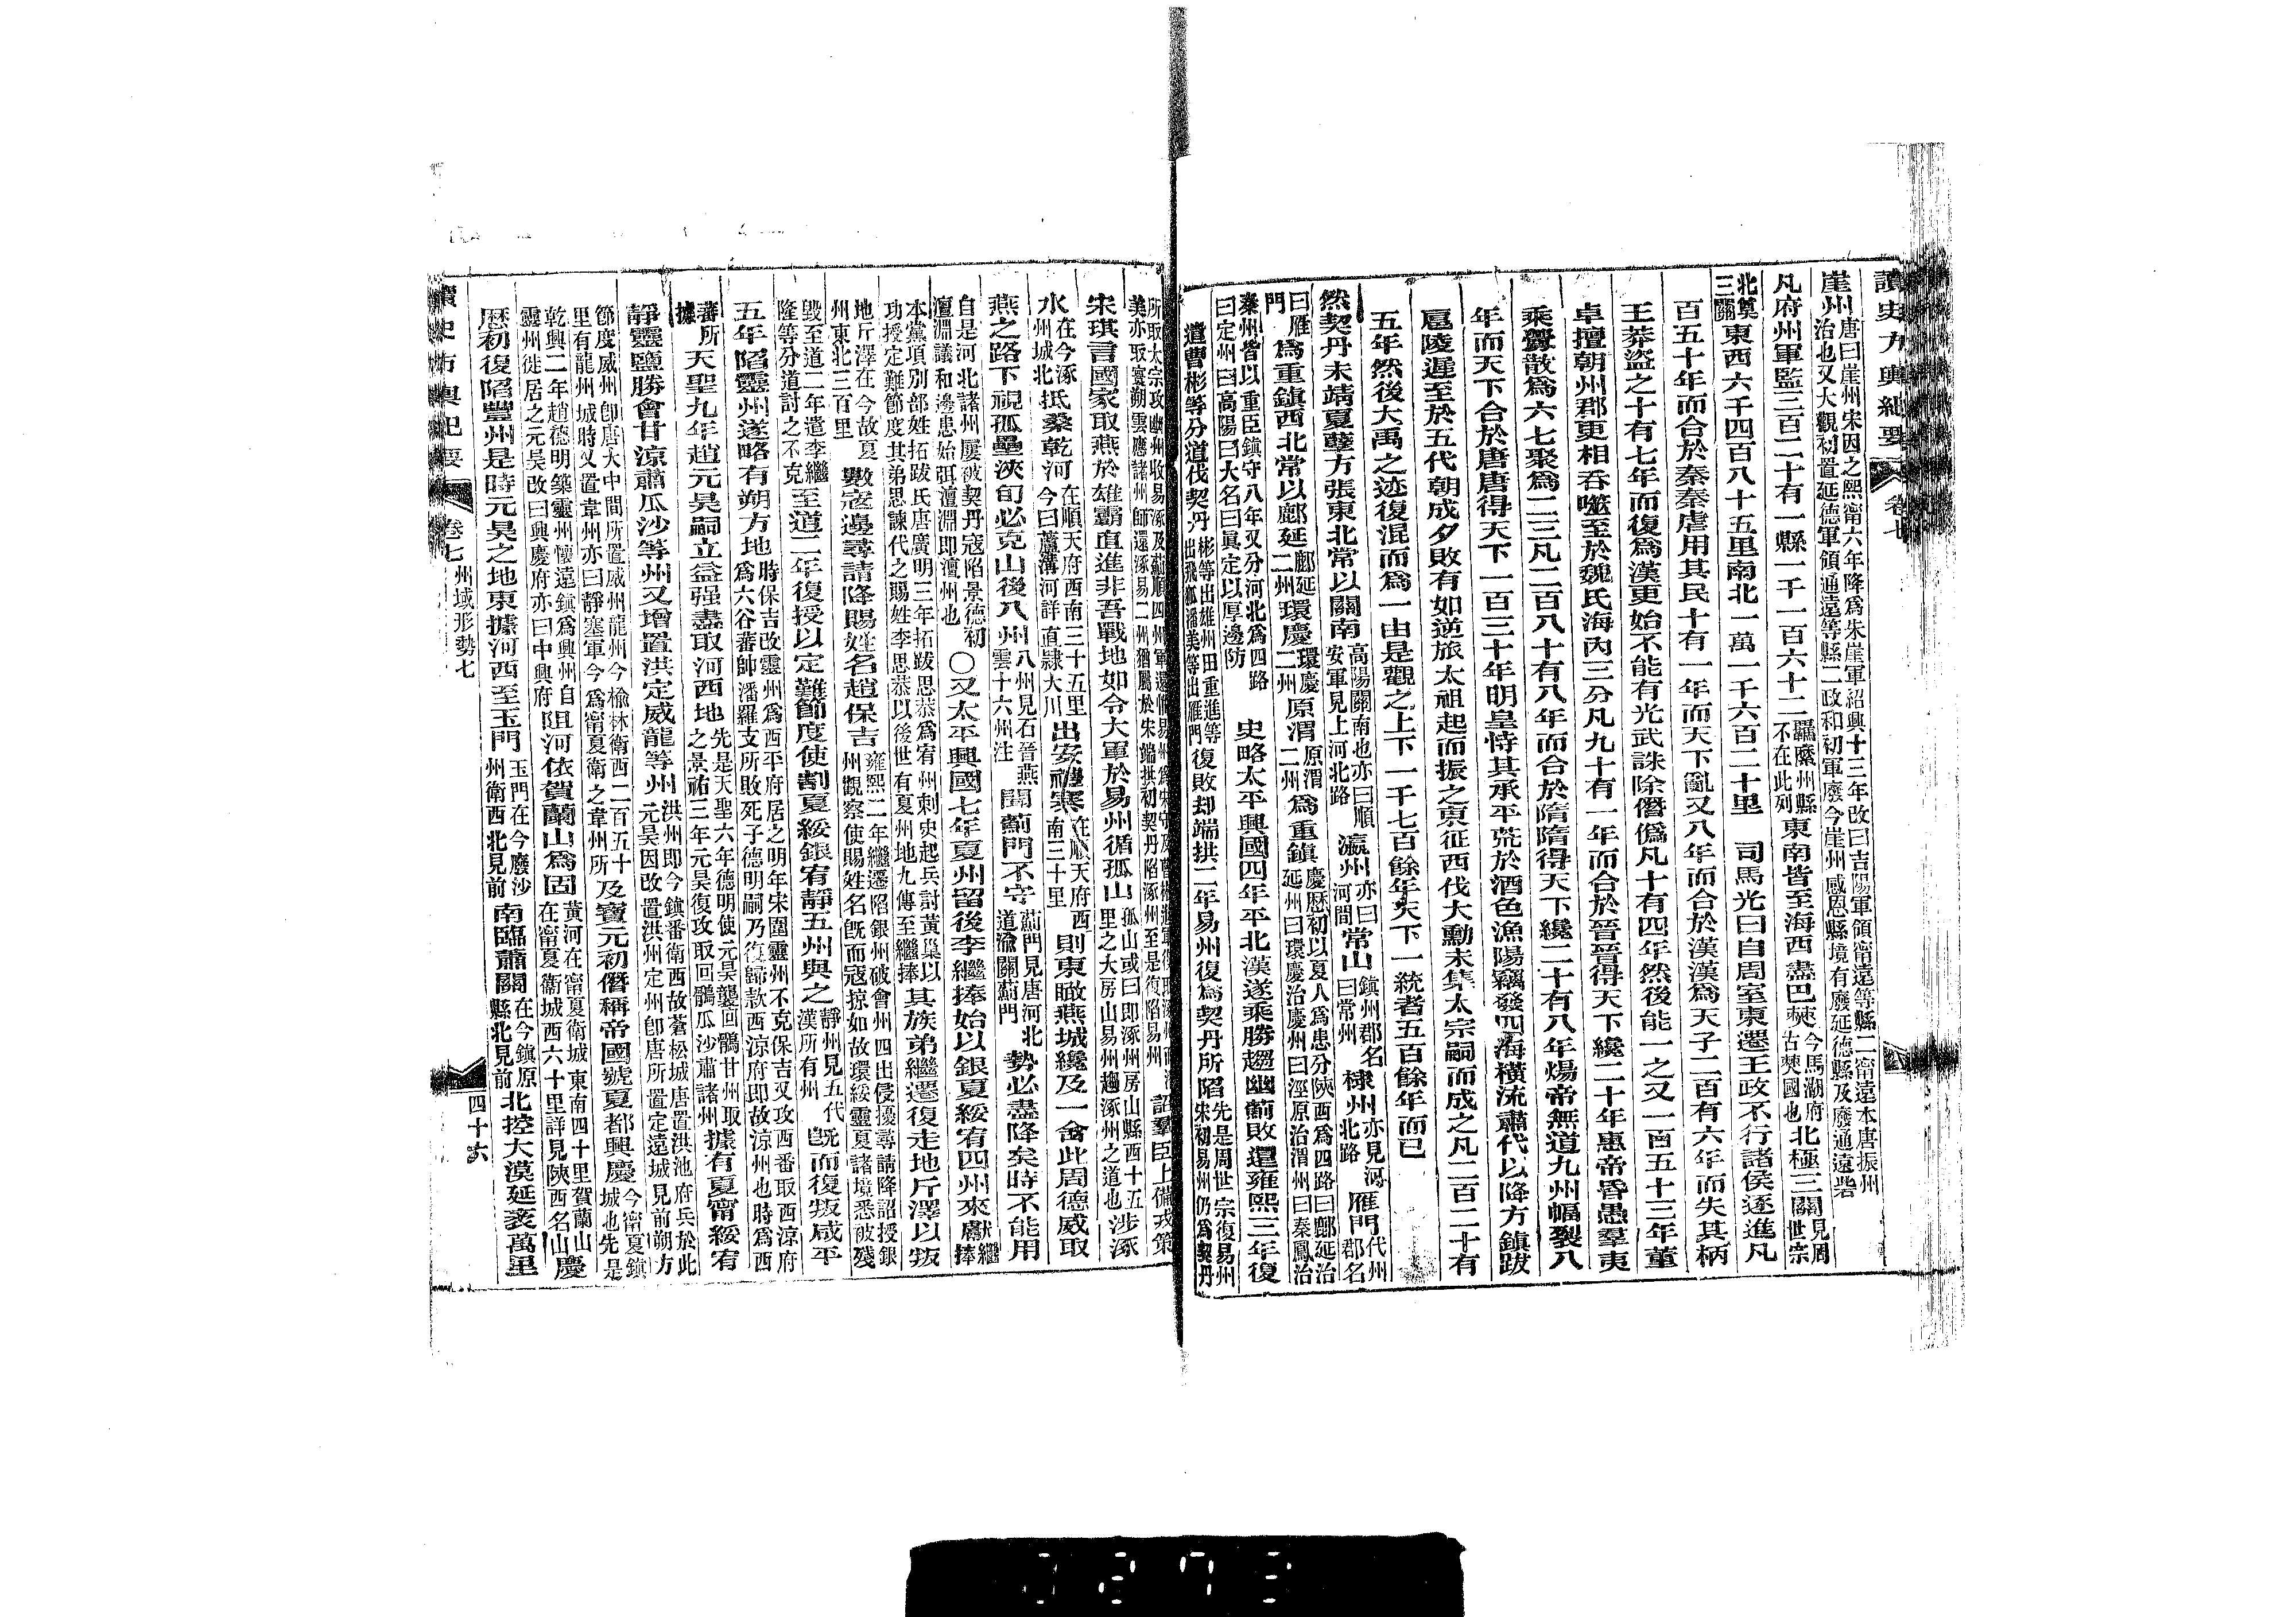 讀史方輿紀要　卷七
崖州唐曰崖州宋因之熙甯六年降爲朱崖軍紹興十三年改曰吉陽軍領甯遠等縣二甯遠本唐振州治也又大觀初置延德軍領通遠等縣二政和初軍廢今崖州感恩縣境有廢延德縣及廢通遠砦
凡府州軍監三百二十有一縣一千一百六十二羈縻州縣不在此列東南皆至海西盡巴僰今馬湖府古僰國也北極三關見周世宗
北奠三關東西六千四百八十五里南北一萬一千六百二十里　司馬光曰自周室東遷王政不行諸侯逐進凡
百五十年而合於秦秦虐用其民十有一年而天下亂又八年而合於漢漢爲天子二百有六年而失其柄
王莽盜之十有七年而復爲漢更始不能有光武誅除僭僞凡十有四年然後能一之又一百五十三年董
卓擅朝州郡更相吞噬至於魏氏海內三分凡九十有一年而合於晉晉得天下纔二十年惠帝昏愚羣夷
乘釁散爲六七聚爲二三凡二百八十有八年而合於隋隋得天下纔二十有八年煬帝無道九州幅裂八
年而天下合於唐唐得天下一百三十年明皇恃其承平荒於酒色漁陽竊發四海橫流肅代以降方鎮跋
扈陵遲至於五代朝成夕敗有如逆旅太祖起而振之東征西伐大勳未集太宗嗣而成之凡二百二十有
五年然後大禹之迹復混而爲一由是觀之上下一千七百餘年天下一統者五百餘年而已
然契丹未靖夏孽方張東北常以關南高陽關南也亦曰順安軍見上河北路瀛州亦曰河間常山鎮州郡名曰常州棣州亦見河北路雁門代州郡名
曰雁門爲重鎮西北常以鄜延鄜延二州環慶環慶二州原渭原渭二州爲重鎮慶曆初以夏人爲患分陝西爲四路曰鄜延治延州曰環慶治慶州曰涇原治渭州曰秦鳳治
秦州皆以重臣鎮守八年又分河北爲四路曰定州曰高陽曰大名曰眞定以厚邊防　史略太平興國四年平北漢遂乘勝趨幽薊敗還雍熙三年復
遣曹彬等分道伐契丹彬等出雄州田重進等出飛狐潘美等出雁門復敗却端拱二年易州復爲契丹所陷先是周世宗復易州宋初易州仍爲契丹
詔羣臣上備戎策
宋琪言國家取燕於雄霸直進非吾戰地如令大軍於易州循孤山孤山或曰即涿州房山縣西十五里之大房山易州趨涿州之道也涉涿
水在今涿州城北抵桑乾河在順天府西南三十五里今曰蘆溝河詳直隸大川出安祖寨在順天府西南三十里則東瞰燕城纔及一舍此周德威取
燕之路下視孤壘浹旬必克山後八州八州見石晉燕雲十六州注聞薊門不守薊門見唐河北道渝關薊門勢必盡降矣時不能用
自是河北諸州屢被契丹寇陷景德初澶淵議和邊患始弭澶淵即澶州也〇又太平興國七年夏州留後李繼捧始以銀夏綏宥四州來獻繼捧
本黨項別部姓拓跋氏唐廣明三年拓跋思恭爲宥州刺史起兵討黃巢以功授定難節度其弟思諫代之賜姓李思恭以後世有夏州地九傳至繼捧其族弟繼遷復走地斤澤以叛
地斤澤在今故夏州東北三百里數寇邊尋請降賜姓名趙保吉雍熙二年繼遷陷銀州破會州四出侵擾尋請降詔授銀州觀察使賜姓名既而寇掠如故環綏靈夏諸境悉被殘
毀至道二年遣李繼隆等分道討之不克至道三年復授以定難節度使割夏綏銀宥靜五州與之靜州見五代漢所有州既而復叛咸平
五年陷靈州遂略有朔方地時保吉改靈州爲西平府居之明年宋圍靈州不克保吉又攻西番取西涼府爲六谷蕃帥潘羅支所敗死子德明嗣乃復歸款西涼府即故涼州也時爲西
蕃所據天聖九年趙元昊嗣立益强盡取河西地先是天聖六年德明使元昊襲回鶻甘州取之景祐三年元昊復攻取回鶻瓜沙肅諸州據有夏甯綏宥
靜靈鹽勝會甘涼肅瓜沙等州又增置洪定威龍等州洪州即今鎮番衛西故蒼松城唐置洪池府兵於此元昊因改置洪州定州即唐所置定遠城見前朔方
節度威州卽唐大中間所置威州龍州今榆林衛西二百五十里有龍州城時又置韋州亦曰靜塞軍今爲甯夏衛之韋州所及寶元初僭稱帝國號夏都興慶今甯夏鎮城也先是
乾興二年趙德明築靈州懷遠鎮爲興州自靈州徙居之元昊改曰興慶府亦曰中興府阻河依賀蘭山爲固黃河在甯夏衛城東南四十里賀蘭山在甯夏衛城西六十里詳見陝西名山慶
歷初復陷豐州是時元昊之地東據河西至玉門玉門在今廢沙州衛西北見前南臨蕭關在今鎮原縣北見前北控大漠延袤萬里
讀史方輿紀要　卷七　州域形勢七　四十六